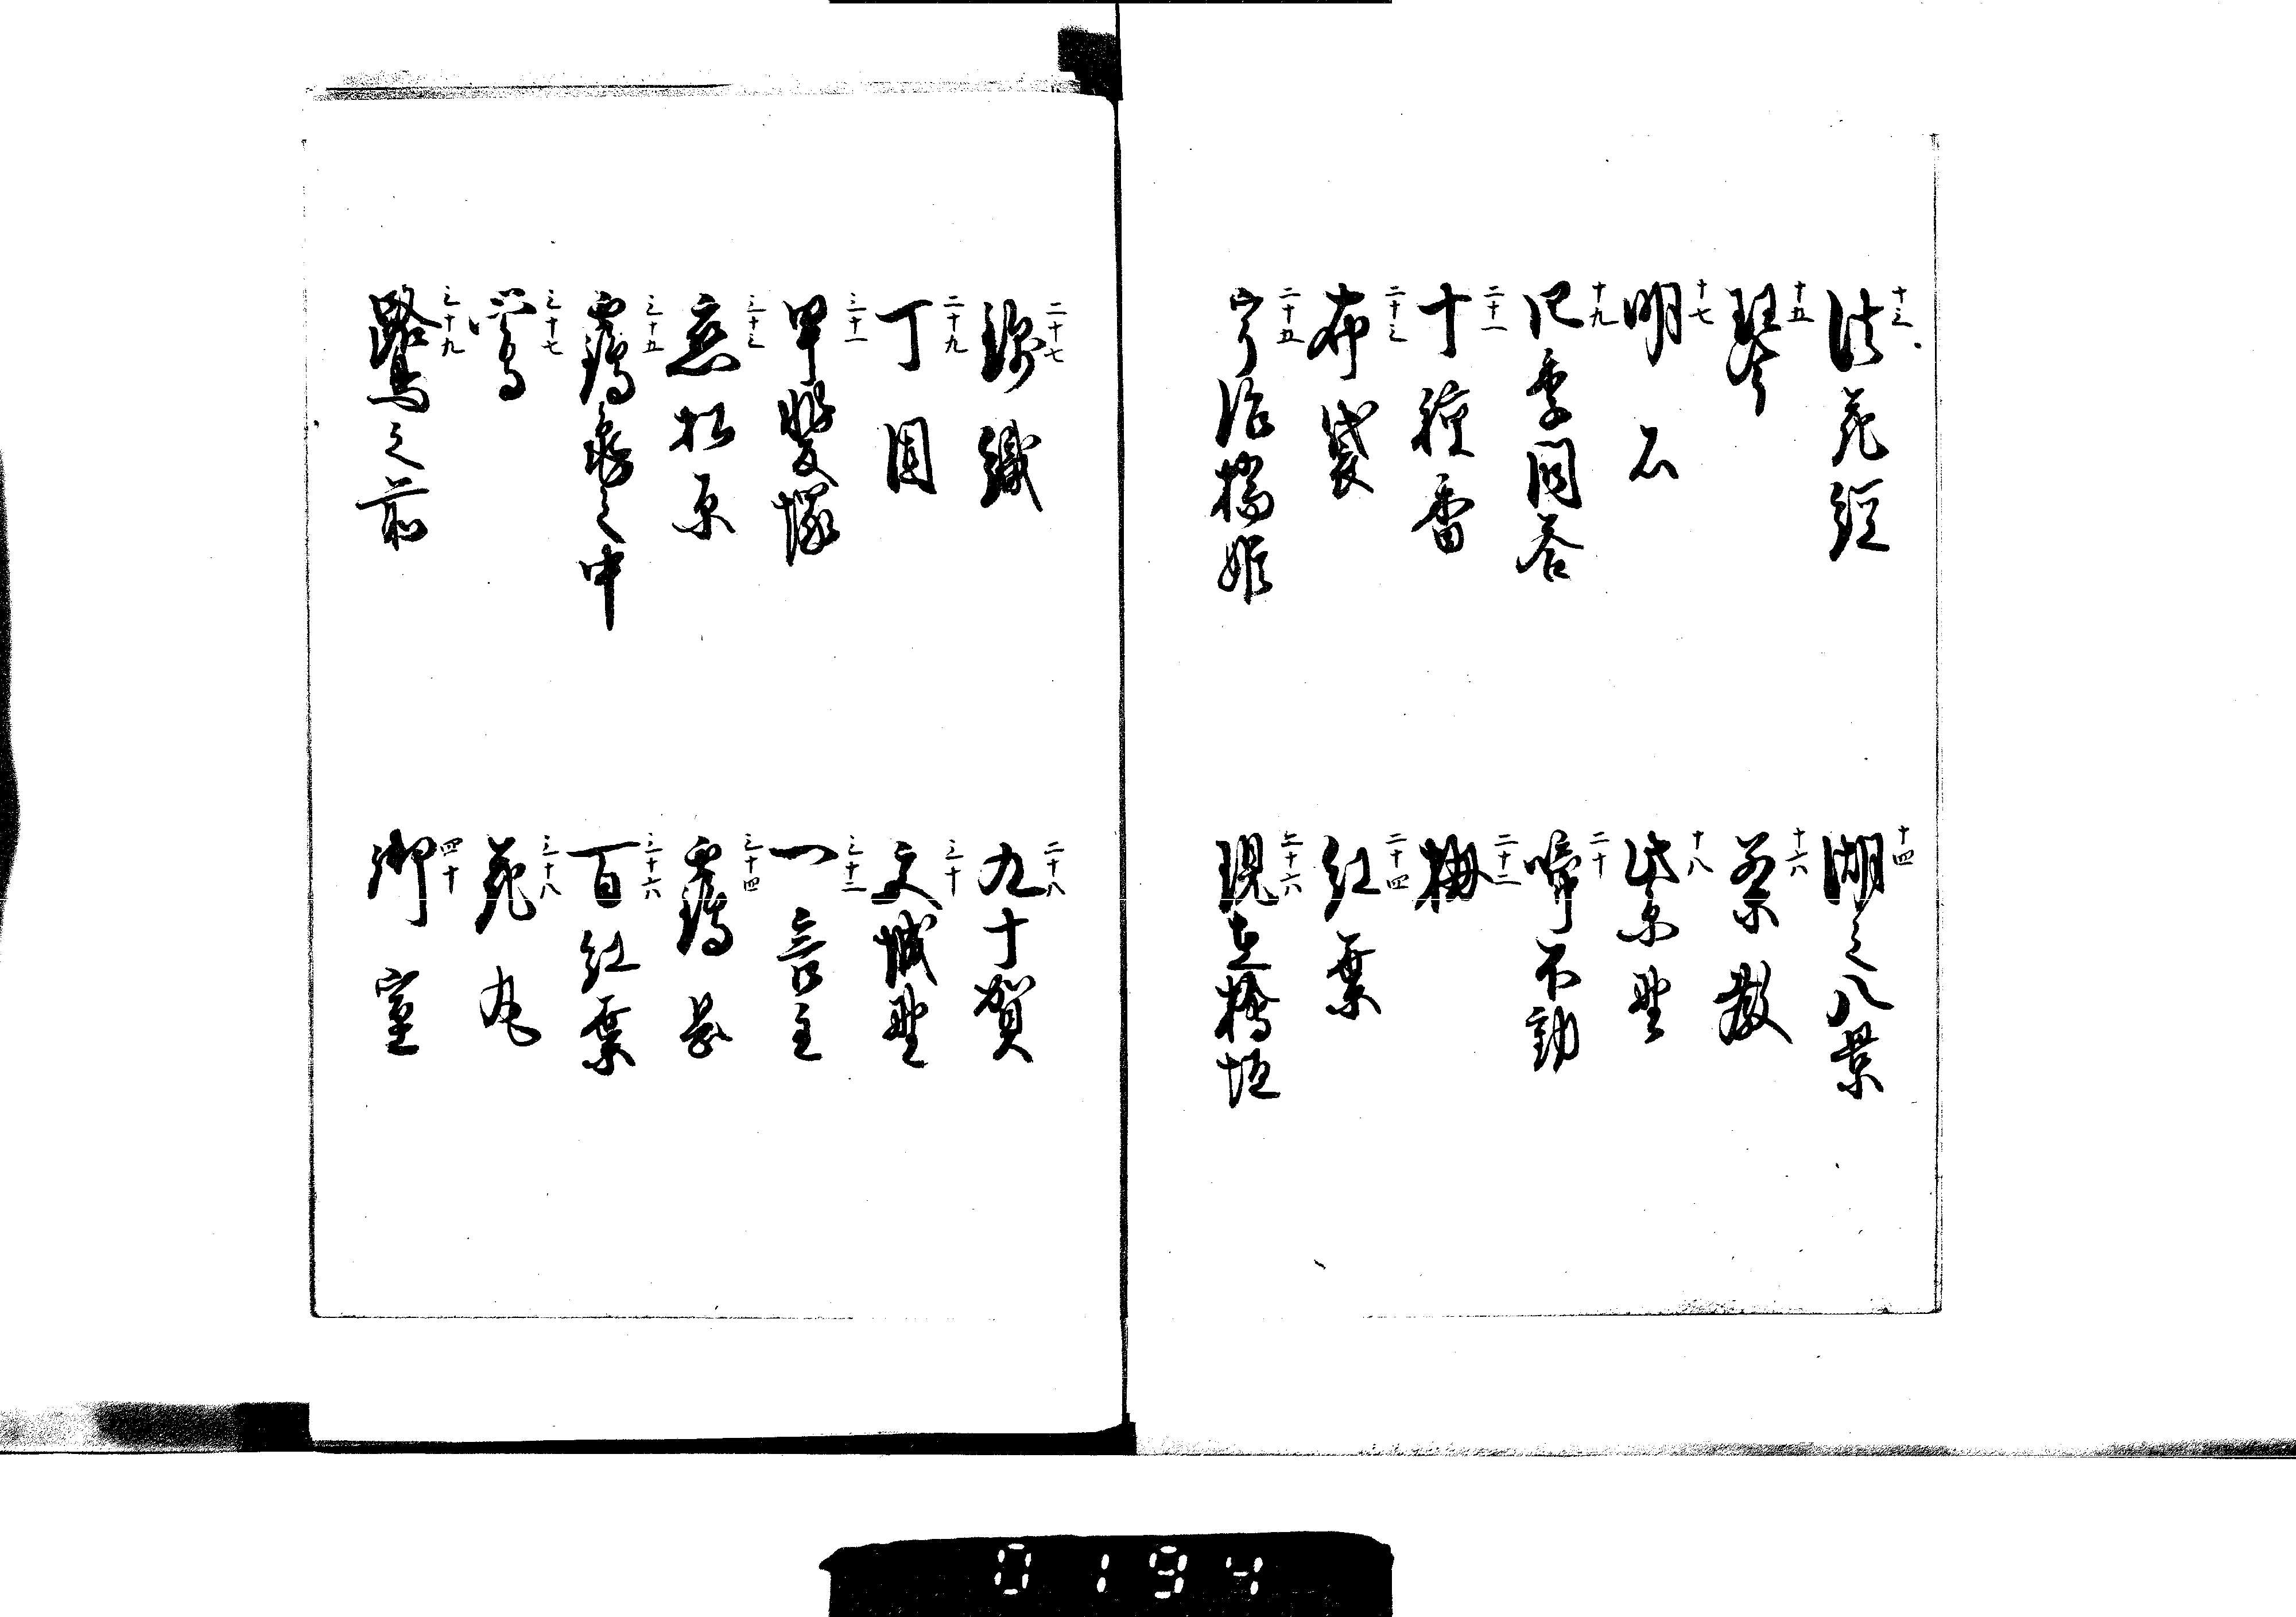 十三 法花経
十四 湖之八景
十五 琴
十六
十七 明石
十八 紫野
十九 季問答
二十 啼不動
二十一 十種香
二十二 梅
二十三 布袋
二十四 紅葉
二十五 宇治橋姫
二十六 現在檜垣
二十七 錦織
二十八 九十賀
二十九 丁固
三十 文野
三十一 甲斐塚
三十二 一言主
三十三 恋松原
三十四 靏
三十五 靏亀之中
三十六 百紅葉
三十七 鶯
三十八 花丸
三十九 鷺之前
四十 御室
0194